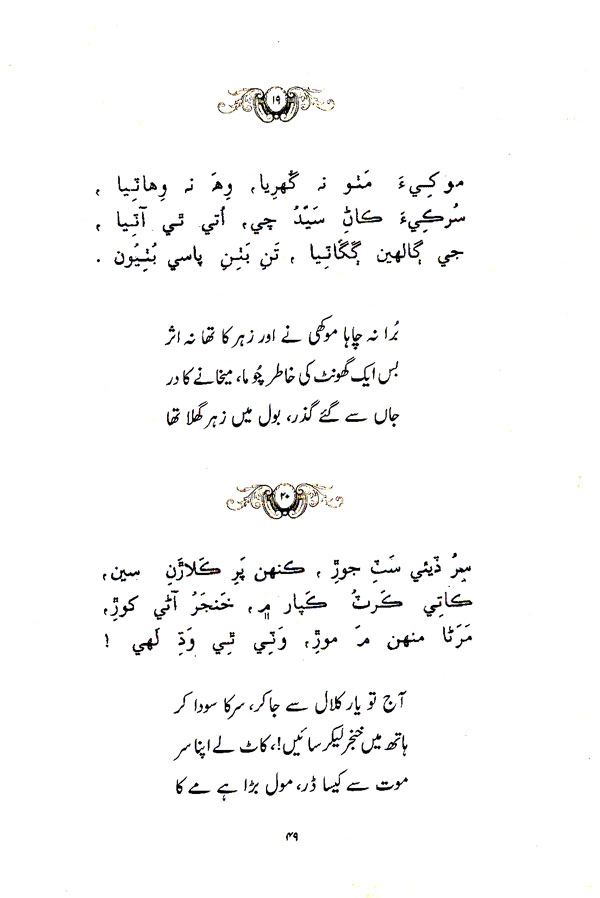 ۱۹
موکِيءَ مَٽو نہ گُهريا، وِھَ نہ وِهاٽِيا ،
سُرڪِيءَ ڪاڻِ سَيَّدُ چي، اُتي ٿي آٽِيا ،
جي ڳالهين ڳَڳاٽِيا ، تَنِ بَٽِنِ پاسي بُٽِيُون .
بُرا نہ چاہا موکھی نے اور زہر کا تھا نہ اثر
بس ایک گھونٹ کی خاطر چُوما، میخانے کا در
جاں سے گئے گذر، بول میں زہر گھلا تھا
۲۰
سِرُ ڏيئي سَٽِ جوڙِ ، ڪنهن پَرِ ڪَلاڙَنِ سين،
ڪاتِي ڪَرَٽُ ڪَپار ۾، خَنجَرُ آڻي کوڙِ،
مَرَڻا منهن مَ موڙِ، وَٽِي ٿي وَڌِ لَهي !
آج تو یار کلال سے جا کر، سر کا سودا کر
ہاتھ میں خنجر لیکر سائیں!، کاٹ لے اپنا سر
موت سے کیسا ڈر، مول بڑا ہے مے کا
۴۹